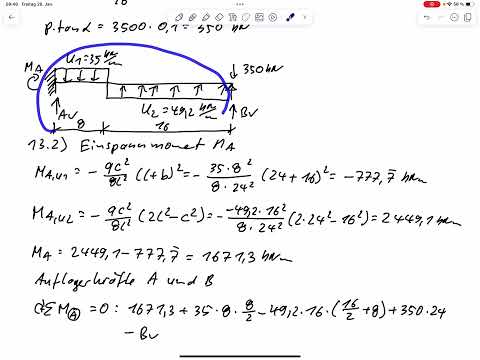 09:40 Freitag 20. Jan.
56 %
p·tand = 3500 · 0,1 = 350 kN
MA
U1 = 35 kN/m
350 kN
AV
U2 = 49,2 kN/m
BV
8
16
13.2) Einspannmoment MA
MA,U1 = - qc²/8l² (l+b)² = - 35·8²/8·24² (24+16)² = -777,7̄ kNm
MA,U2 = - qc²/8l² (2l²-c²) = - -49,2·16²/8·24² (2·24²-16²) = 2449,1 kNm
MA = 2449,1 - 777,7̄ = 1671,3 kNm
Auflagerkräfte A und B
ΣM(A) = 0 : 1671,3 + 35·8·8/2 - 49,2·16·(16/2+8) + 350·24
- BV